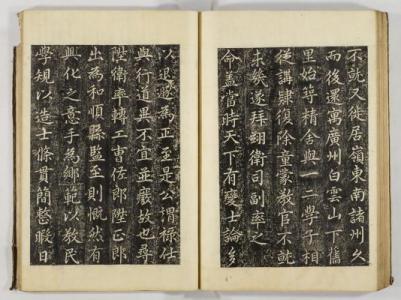 不就又徙居嶺東南諸州久
而後還寓廣州白雲山下舊
里始等精舍與一二學子相
從講肄復除童蒙教官不就
未幾遂拜翊衛司副率之
命蓋當時天下有變士論多
以退遯為正至是公謂祿仕
與行道與不宜並廢故也尋
陞衛率轉工曹佐郎陞正郎
出為和順縣監至則慨然有
興化之意手為鄉範以教民
學規以造士條貫簡整暇日